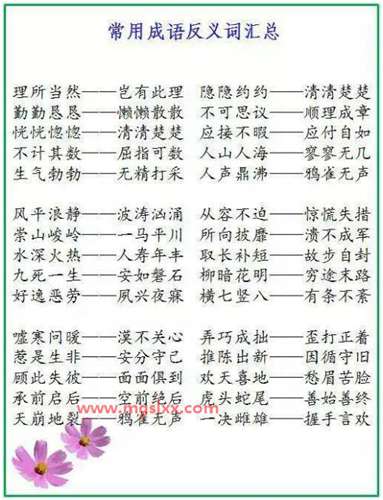 常用成语反义词汇总
理所当然——岂有此理 隐隐约约——清清楚楚
勤勤恳恳——懒懒散散 不可思议——顺理成章
恍恍惚惚——清清楚楚 应接不暇——应付自如
不计其数——屈指可数 人山人海——寥寥无几
生气勃勃——无精打采 人声鼎沸——鸦雀无声
风平浪静——波涛汹涌 从容不迫——惊慌失措
崇山峻岭——一马平川 所向披靡——溃不成军
水深火热——人寿年丰 取长补短——故步自封
九死一生——安如磐石 柳暗花明——穷途末路
好逸恶劳——夙兴夜寐 横七竖八——有条不紊
嘘寒问暖——漠不关心 弄巧成拙——歪打正着
惹是生非——安分守己 推陈出新——因循守旧
顾此失彼——面面俱到 欢天喜地——愁眉苦脸
承前启后——空前绝后 虎头蛇尾——善始善终
天崩地裂——鸦雀无声 一决雌雄——握手言欢
www.mgslxx.com